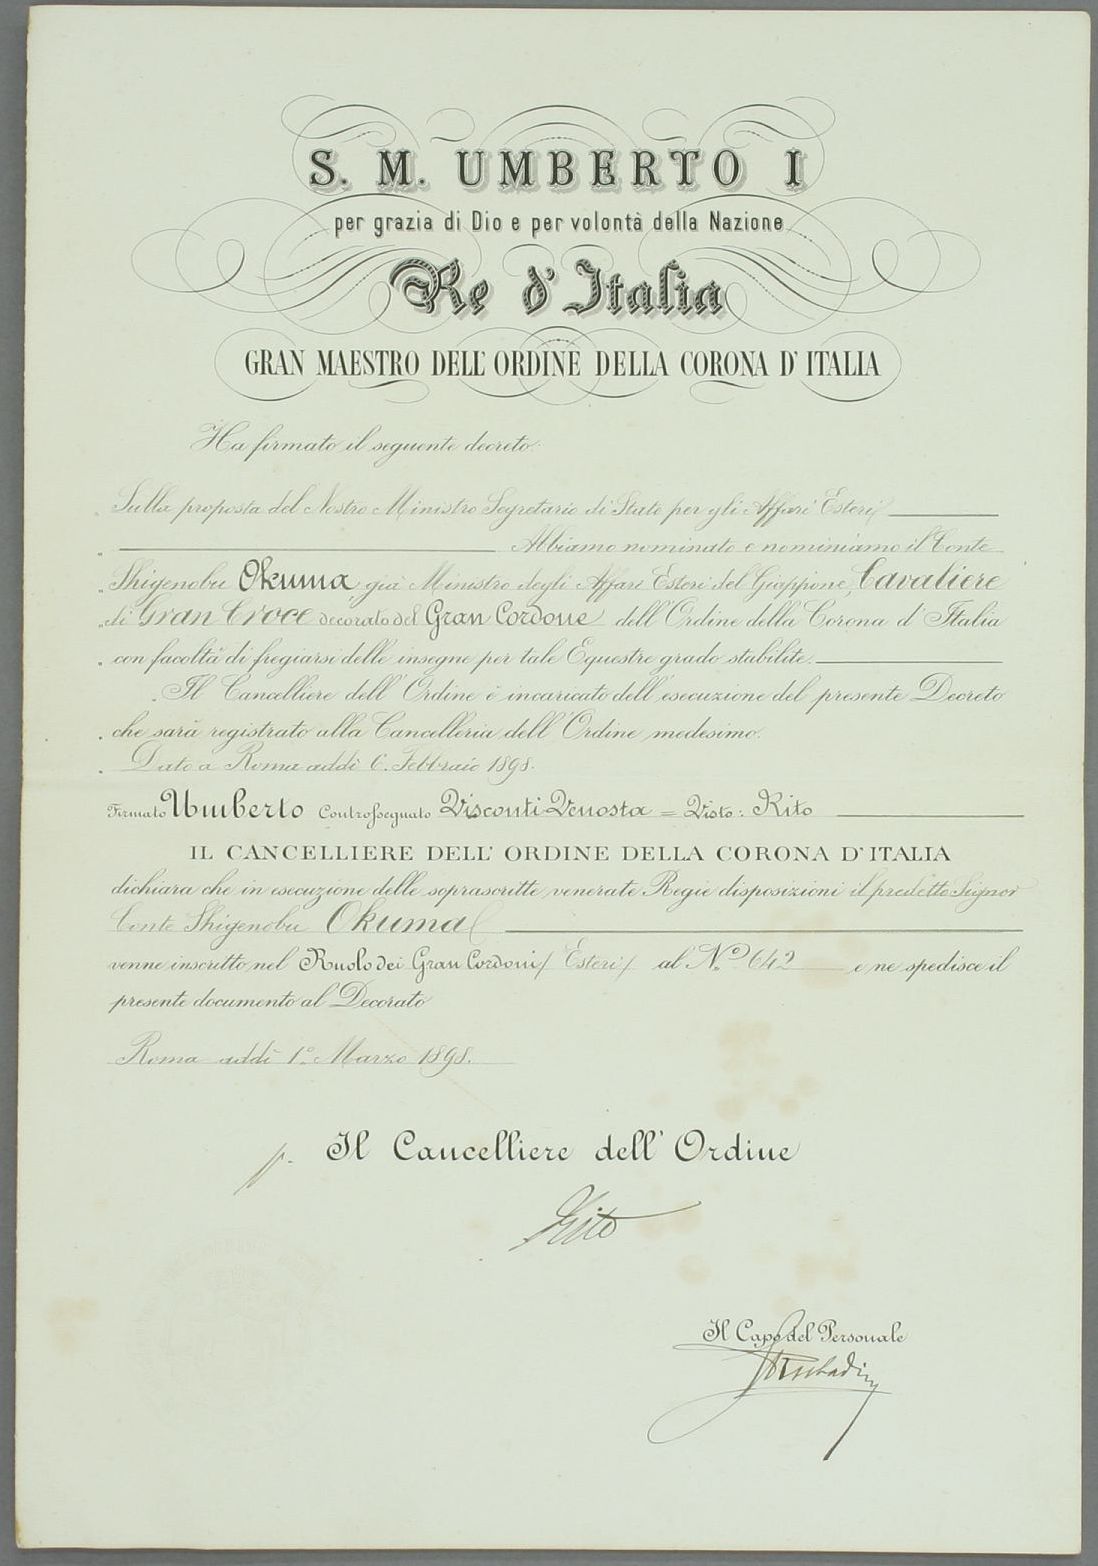 S. M. UMBERTO I
per grazia di Dio e per volontà della Nazione
Re d'Italia
GRAN MAESTRO DELL'ORDINE DELLA CORONA D'ITALIA
Ha firmato il seguente decreto:
Sulla proposta del Nostro Ministro Segretario di Stato per gli Affari Esteri
„ Abbiamo nominato e nominiamo il Conte
„ Shigenobu Okuma, già Ministro degli Affari Esteri del Giappone, Cavaliere
„ di Gran Croce decorato del Gran Cordone dell'Ordine della Corona d'Italia
„ con facoltà di fregiarsi delle insegne per tale Equestre grado stabilite.
„ Il Cancelliere dell'Ordine è incaricato dell'esecuzione del presente Decreto
„ che sarà registrato alla Cancelleria dell'Ordine medesimo.
„ Dato a Roma addì 6. Febbraio 1898.
Firmato Umberto Controssegnato Visconti Venosta = Visto: Rito
IL CANCELLIERE DELL'ORDINE DELLA CORONA D'ITALIA
dichiara che in esecuzione delle soprascritte venerate Regie disposizioni il predetto Signor
Conte Shigenobu Okuma
venne inscritto nel Ruolo dei Gran Cordoni (Esteri) al N.º 642 e ne spedisce il
presente documento al Decorato
Roma addì 1º Marzo 1898.
p. Il Cancelliere dell'Ordine
Rito
Il Capo del Personale